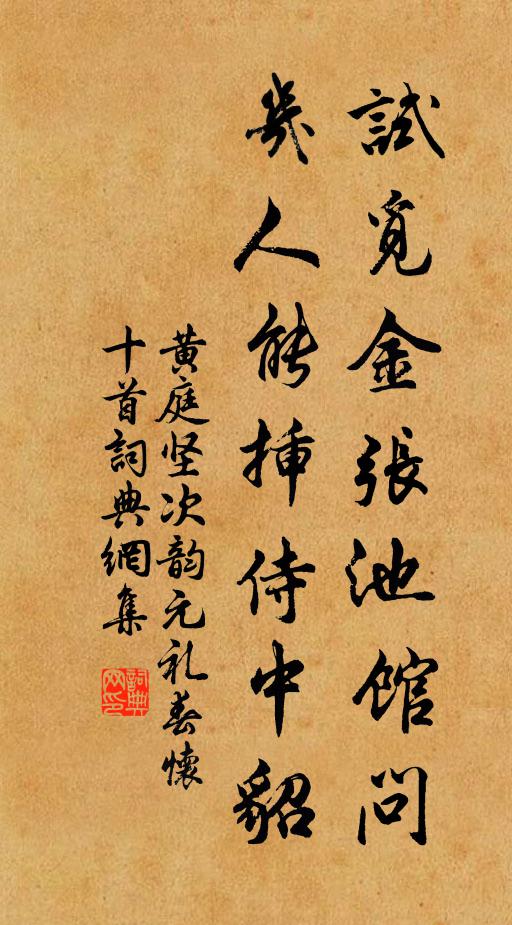 試覓金張池館問
幾人能挿侍中貂
黄庭坚次韵元礼春懷
十首詞典網集
詞典网印